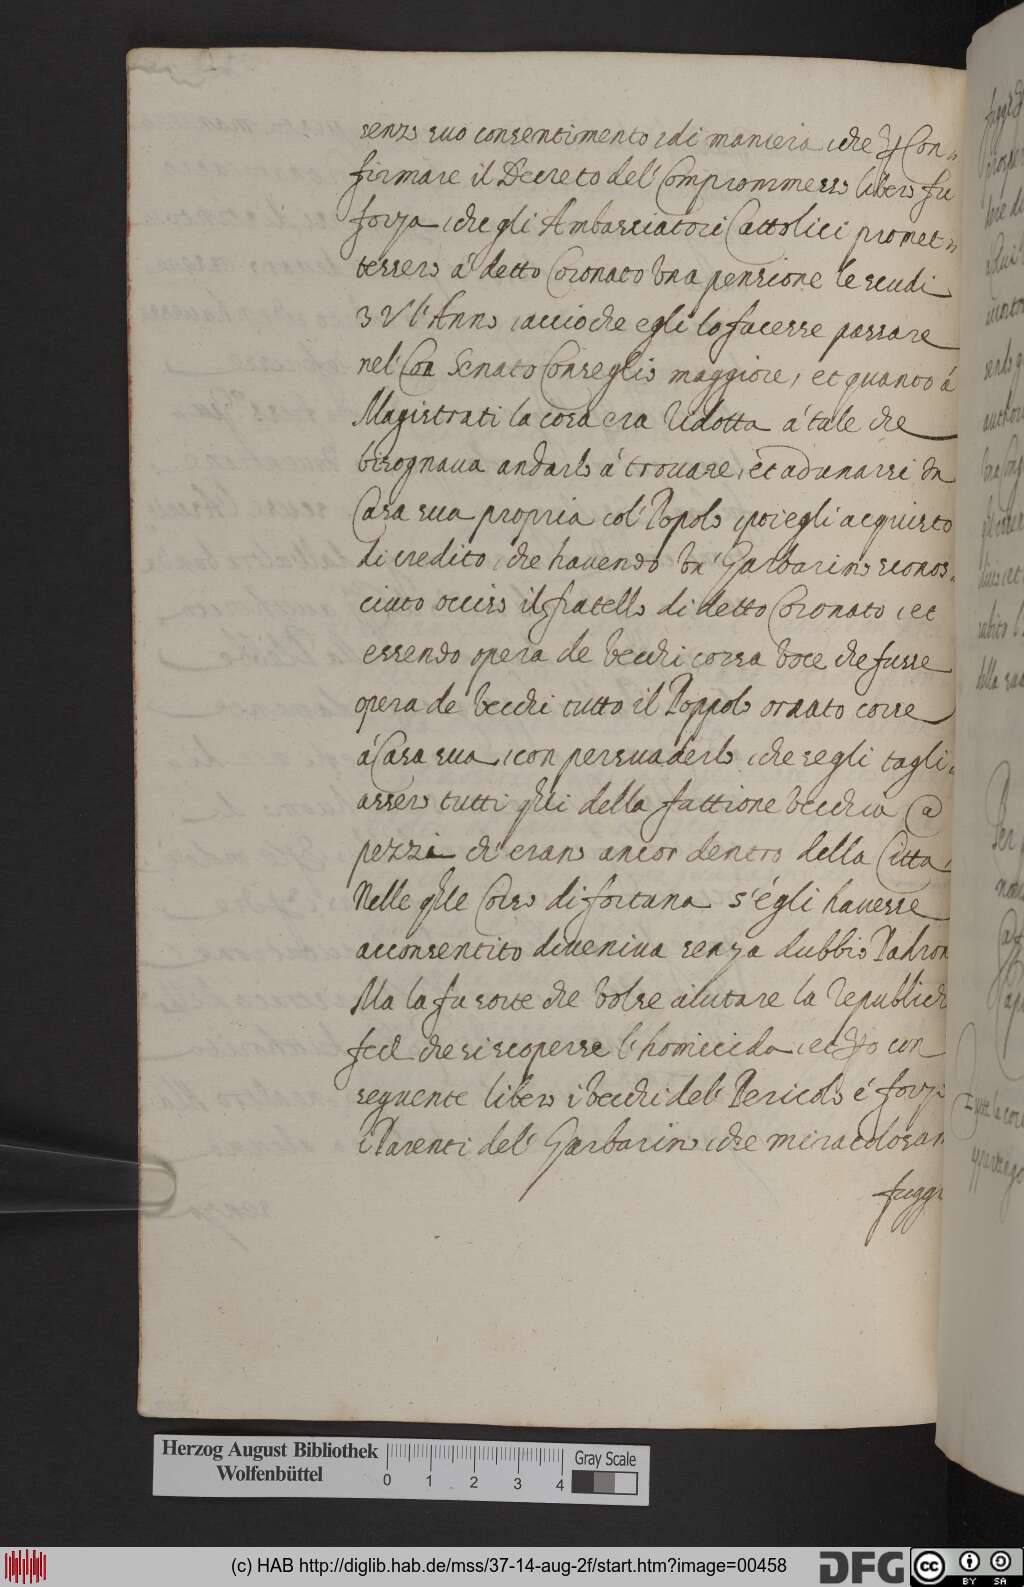 senza suo consentimento, di maniera, che p Con=
firmare il Decreto del' Compromesso libero fu
forza, che gli Ambasciatori Cattolici promet=
tessero á detto Coronato vna pensione le scudi
3 V l'Anno, acciò che egli lo facesse passare
nel' Con Senato Conseglio maggiore, et quanto á
Magistrati la cosa era ridotta á tale che
bisognaua andarlo á trouare, et adunarsi in
Casa sua propria col' Popolo, poi egli acquisto
di credito, che hauendo vn' Garbarino sconos=
ciuto occiso il fratello di detto Coronato, et
essendo opera de vecchi corsa voce che fusse
opera de vecchi tutto il Poppolo armato corse
á Casa sua, con persuaderlo, che se gli tagli=
assero tutti qlli della fattione vecchia a
pezzi ch' erano ancor dentro della Citta,
Nelle qlle Corso di fortuna s' égli hauesse
acconsentito diueniua senza dubbio Padron
Ma la fu sorte che volse aiutare la republich
fece che si scoperse l' homicida, et p con
seguente libero i vecchi del' Pericolo é forza
i Parenti del' Garbarino, che miracolosam
fuggi
Herzog August Bibliothek
Wolfenbüttel
0 1 2 3 4
Gray Scale
(c) HAB http://diglib.hab.de/mss/37-14-aug-2f/start.htm?image=00458
DFG
cc
BY SA